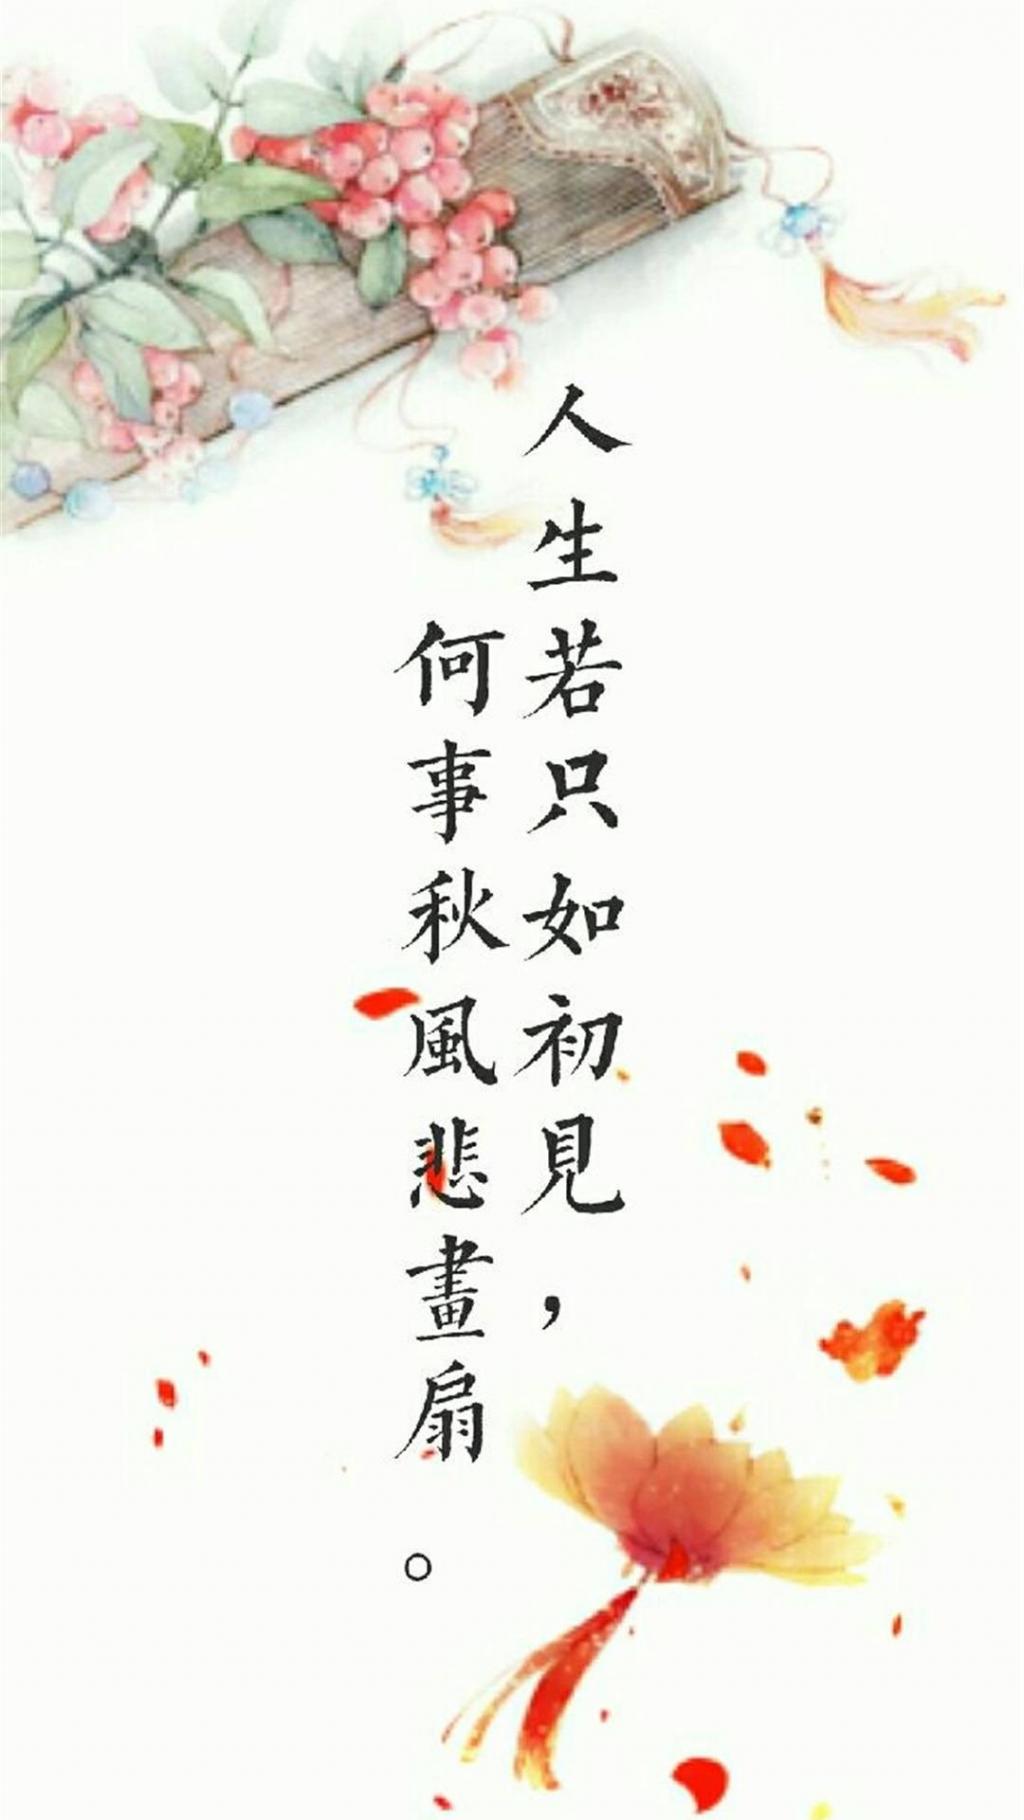 人生若只如初見，
何事秋風悲畫扇。